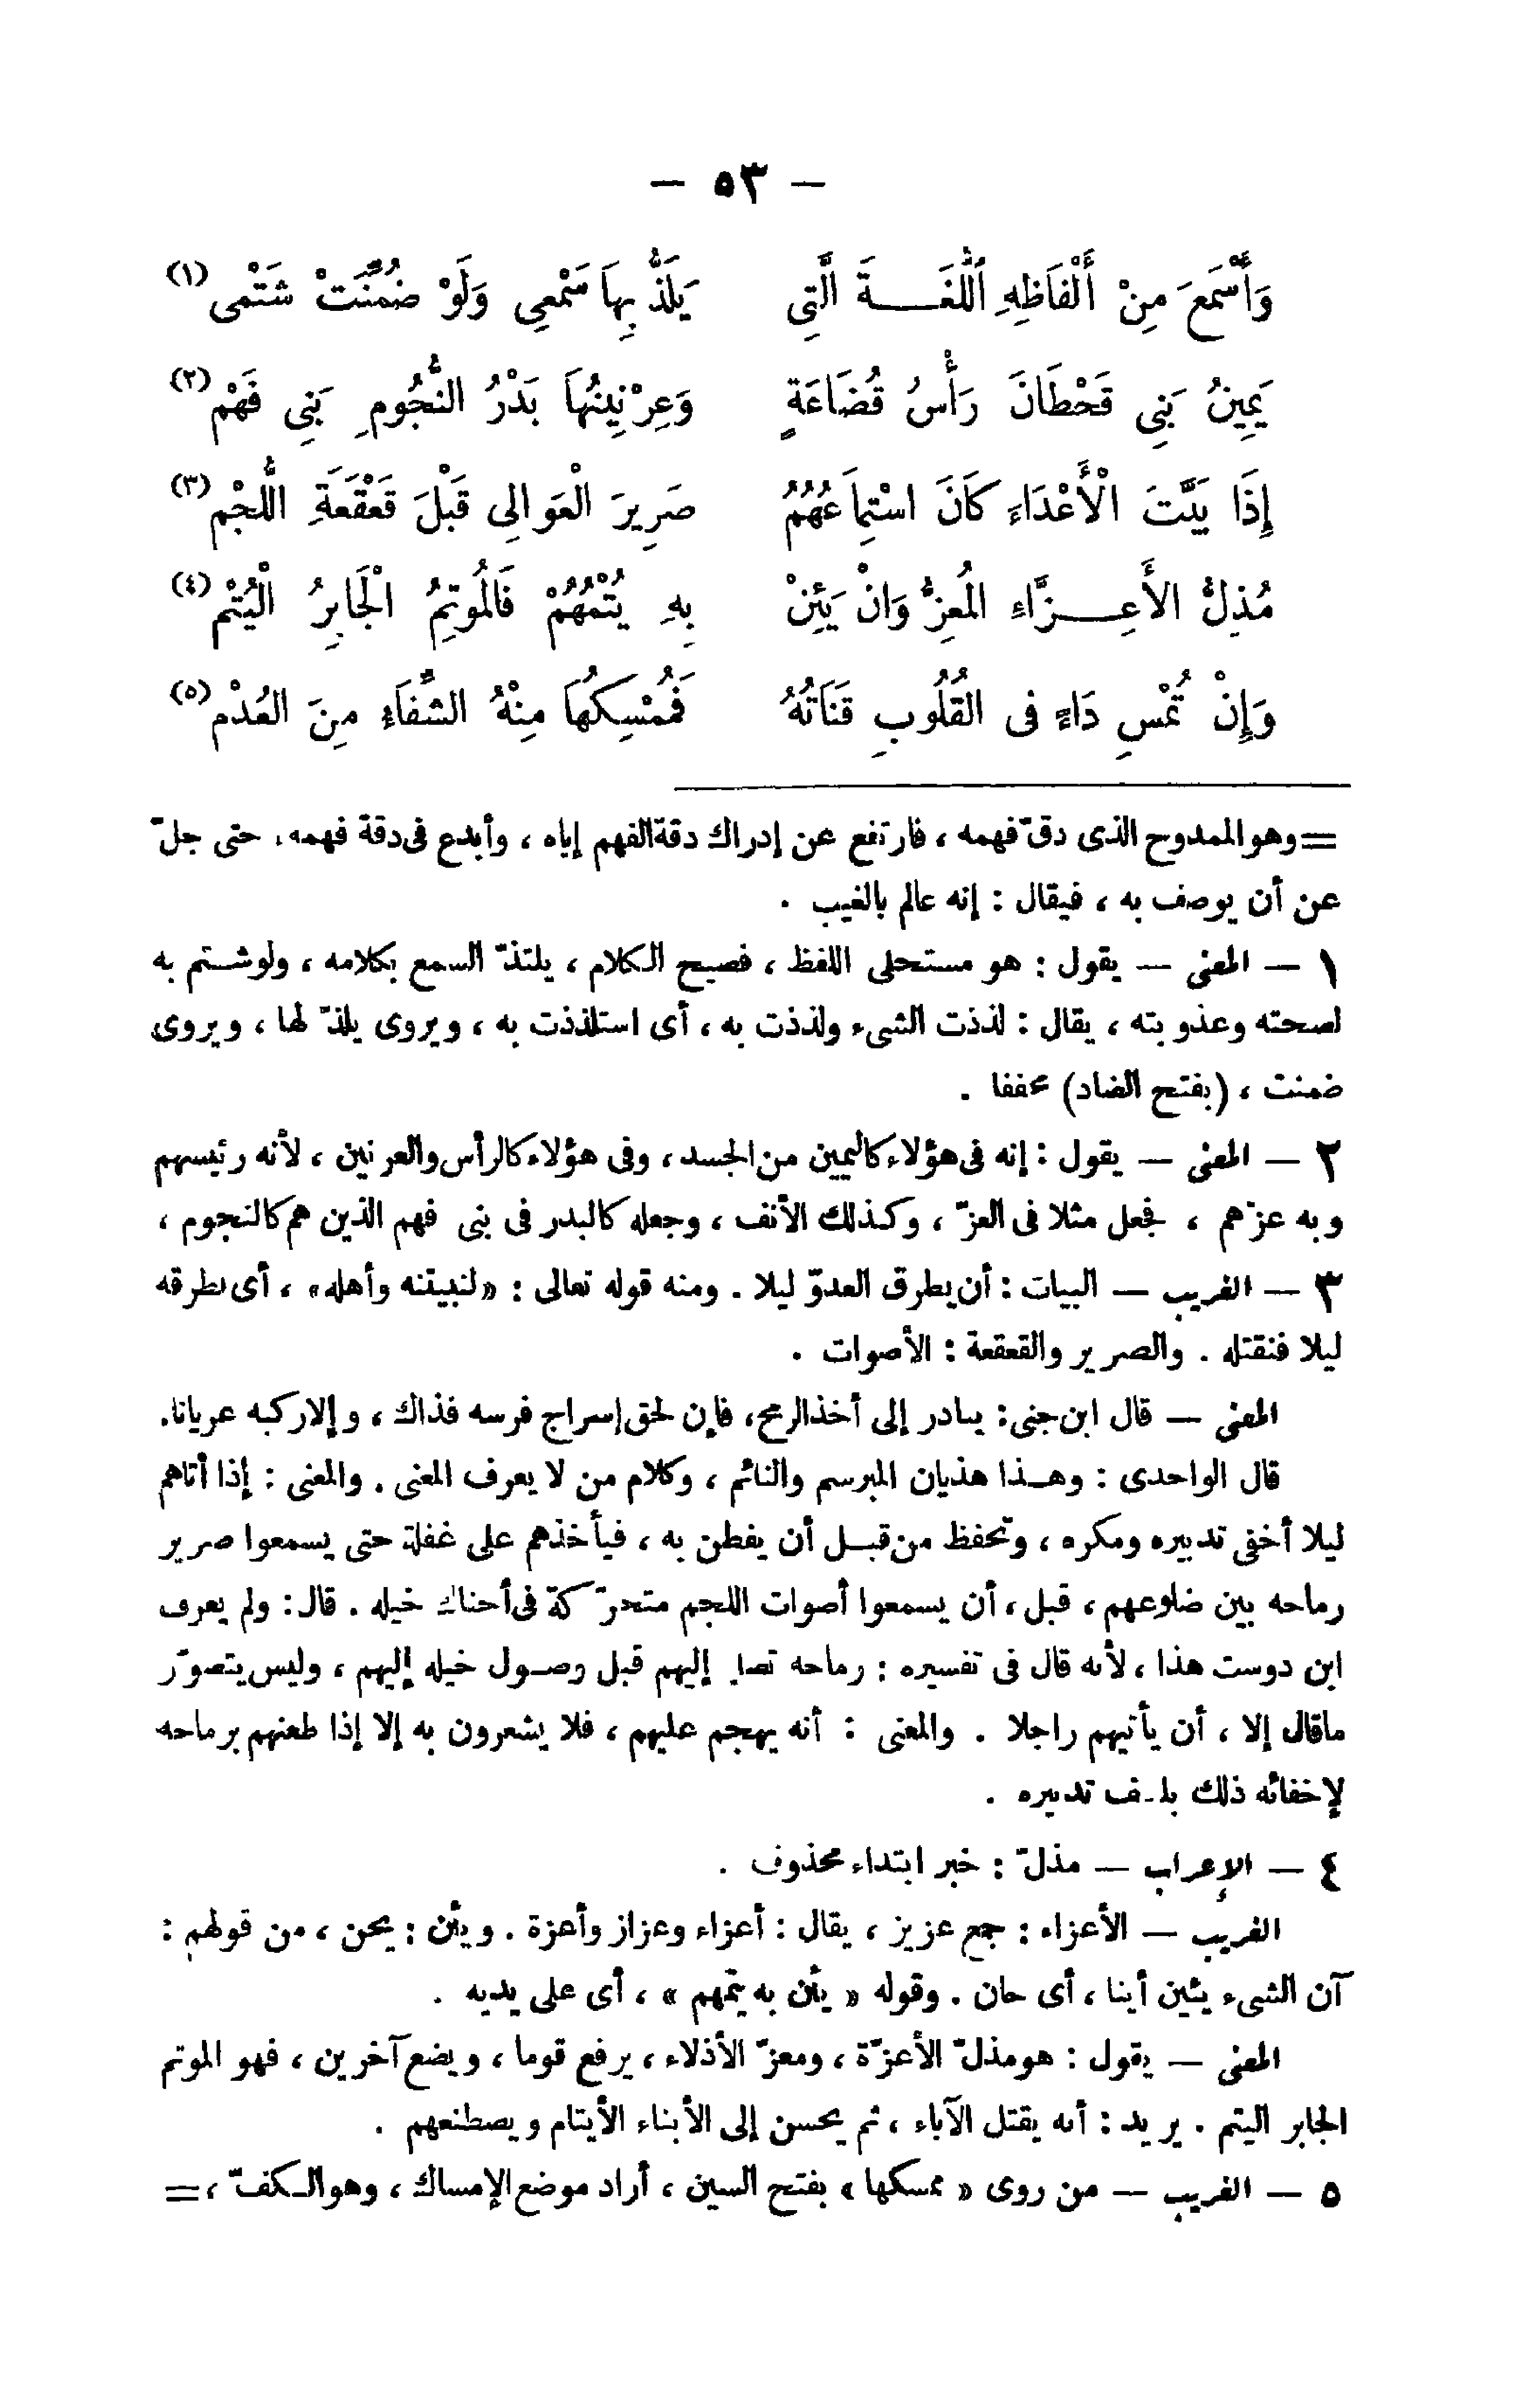 — ٥٣ —
وَأَسْمَعَ مِنْ أَلْفَاظِهِ ٱللُّغَـــةَ الَّتِي يَلَذُّ بِهَا سَمْعِي وَلَوْ ضُمِّنَتْ شَتْمِى (١)
يَمِينُ بَنِي قَحْطَانَ رَأْسُ قُضَاعَةٍ وَعِرْنِينُهَا بَدْرُ النُّجُومِ بَنِي فَهْمِ (٢)
إِذَا بَيَّتَ الْأَعْدَاءَ كَانَ اسْتِمَاعُهُمُ صَرِيرَ الْعَوَالِى قَبْلَ قَعْقَعَةِ اللُّجْمِ (٣)
مُذِلُّ الأَعِـــزَّاءِ المُعِزُّ وَانْ يَئِنْ بِهِ يُتْمُهُمْ فَالمُوتِمُ الْجَابِرُ الْيُتْمِ (٤)
وَإِنْ تُمْسِ دَاءً فى القُلُوبِ قَنَاتُهُ فَمُمْسِكُهَا مِنْهُ الشِّفَاءُ مِنَ العُدْمِ (٥)
=وهو الممدوح الذى دقّ فهمه ، فارتفع عن إدراك دقة الفهم إياه ، وأبدع فى دقة فهمه ، حتى جلّ
عن أن يوصف به ، فيقال : إنه عالم بالغيب .
١ — المعنى — يقول : هو مستحلى اللفظ ، فصيح الكلام ، يلتذّ السمع بكلامه ، ولو شتم به
لصحته وعذوبته ، يقال : لذذت الشىء ولذذت به ، أى استلذذت به ، ويروى يلذّ لها ، ويروى
ضمنت ، (بفتح الضاد) مخففا .
٢ — المعنى — يقول : إنه فى هؤلاء كاليمين من الجسد ، وفى هؤلاء كالرأس والعرنين ، لأنه رئيسهم
وبه عزّهم ، فجعل مثلا فى العزّ ، وكذلك الأنف ، وجعله كالبدر فى بنى فهم الذين هم كالنجوم ،
٣ — الغريب — البيات : أن يطرق العدوّ ليلا . ومنه قوله تعالى : «لنبيتنه وأهله» ، أى نطرقه
ليلا فنقتله . والصرير والقعقعة : الأصوات .
المعنى — قال ابن جنى : يبادر إلى أخذ الرمح ، فإن لحق إسراج فرسه فذاك ، وإلا ركبه عريانا .
قال الواحدى : وهـذا هذيان المبرسم والنائم ، وكلام من لا يعرف المعنى . والمعنى : إذا أتاهم
ليلا أخفى تدبيره ومكره ، وتحفظ من قبـل أن يفطن به ، فيأخذهم على غفلة حتى يسمعوا صرير
رماحه بين ضلوعهم ، قبل ، أن يسمعوا أصوات اللجم متحرّكة فى أحناك خيله . قال : ولم يعرف
ابن دوست هذا ، لأنه قال فى تفسيره : رماحه تصل إليهم قبل وصـول خيله إليهم ، وليس يتصوّر
ماقال إلا ، أن يأتيهم راجلا . والمعنى : أنه يهجم عليهم ، فلا يشعرون به إلا إذا طعنهم برماحه
لإخفائه ذلك تدبيره .
٤ — الإعراب — مذلّ : خبر ابتداء محذوف .
الغريب — الأعزاء : جمع عزيز ، يقال : أعزاء وعزاز وأعزة . ويئن : يحن ، من قولهم :
آن الشىء يئين أينا ، أى حان . وقوله « يئن به يتمهم » ، أى على يديه .
المعنى — يقول : هو مذلّ الأعزّة ، ومعزّ الأذلاء ، يرفع قوما ، ويضع آخرين ، فهو الموتم
الجابر اليتم . يريد : أنه يقتل الآباء ، ثم يحسن إلى الأبناء الأيتام ويصطنعهم .
٥ — الغريب — من روى « ممسكها » بفتح السين ، أراد موضع الإمساك ، وهو الكفّ ، =